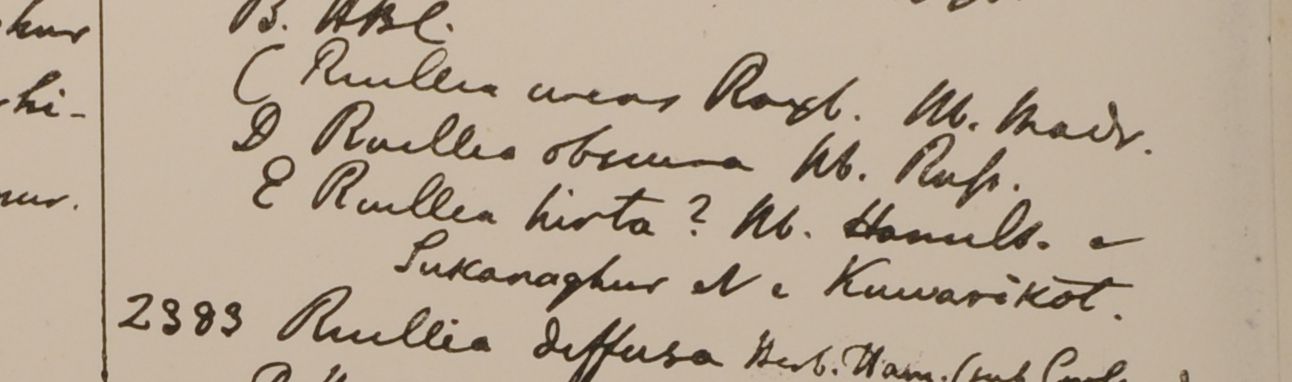 kur
B. HBC.
C Ruellia urens Roxb. Hb. Madr.
hi-
D Ruellia obscura Hb. Russ.
E Ruellia hirta? Hb. Hamilt. e
nur.
Sukanaghur et e Kuwarikot.
2383 Ruellia diffusa Herb. Ham. (sub